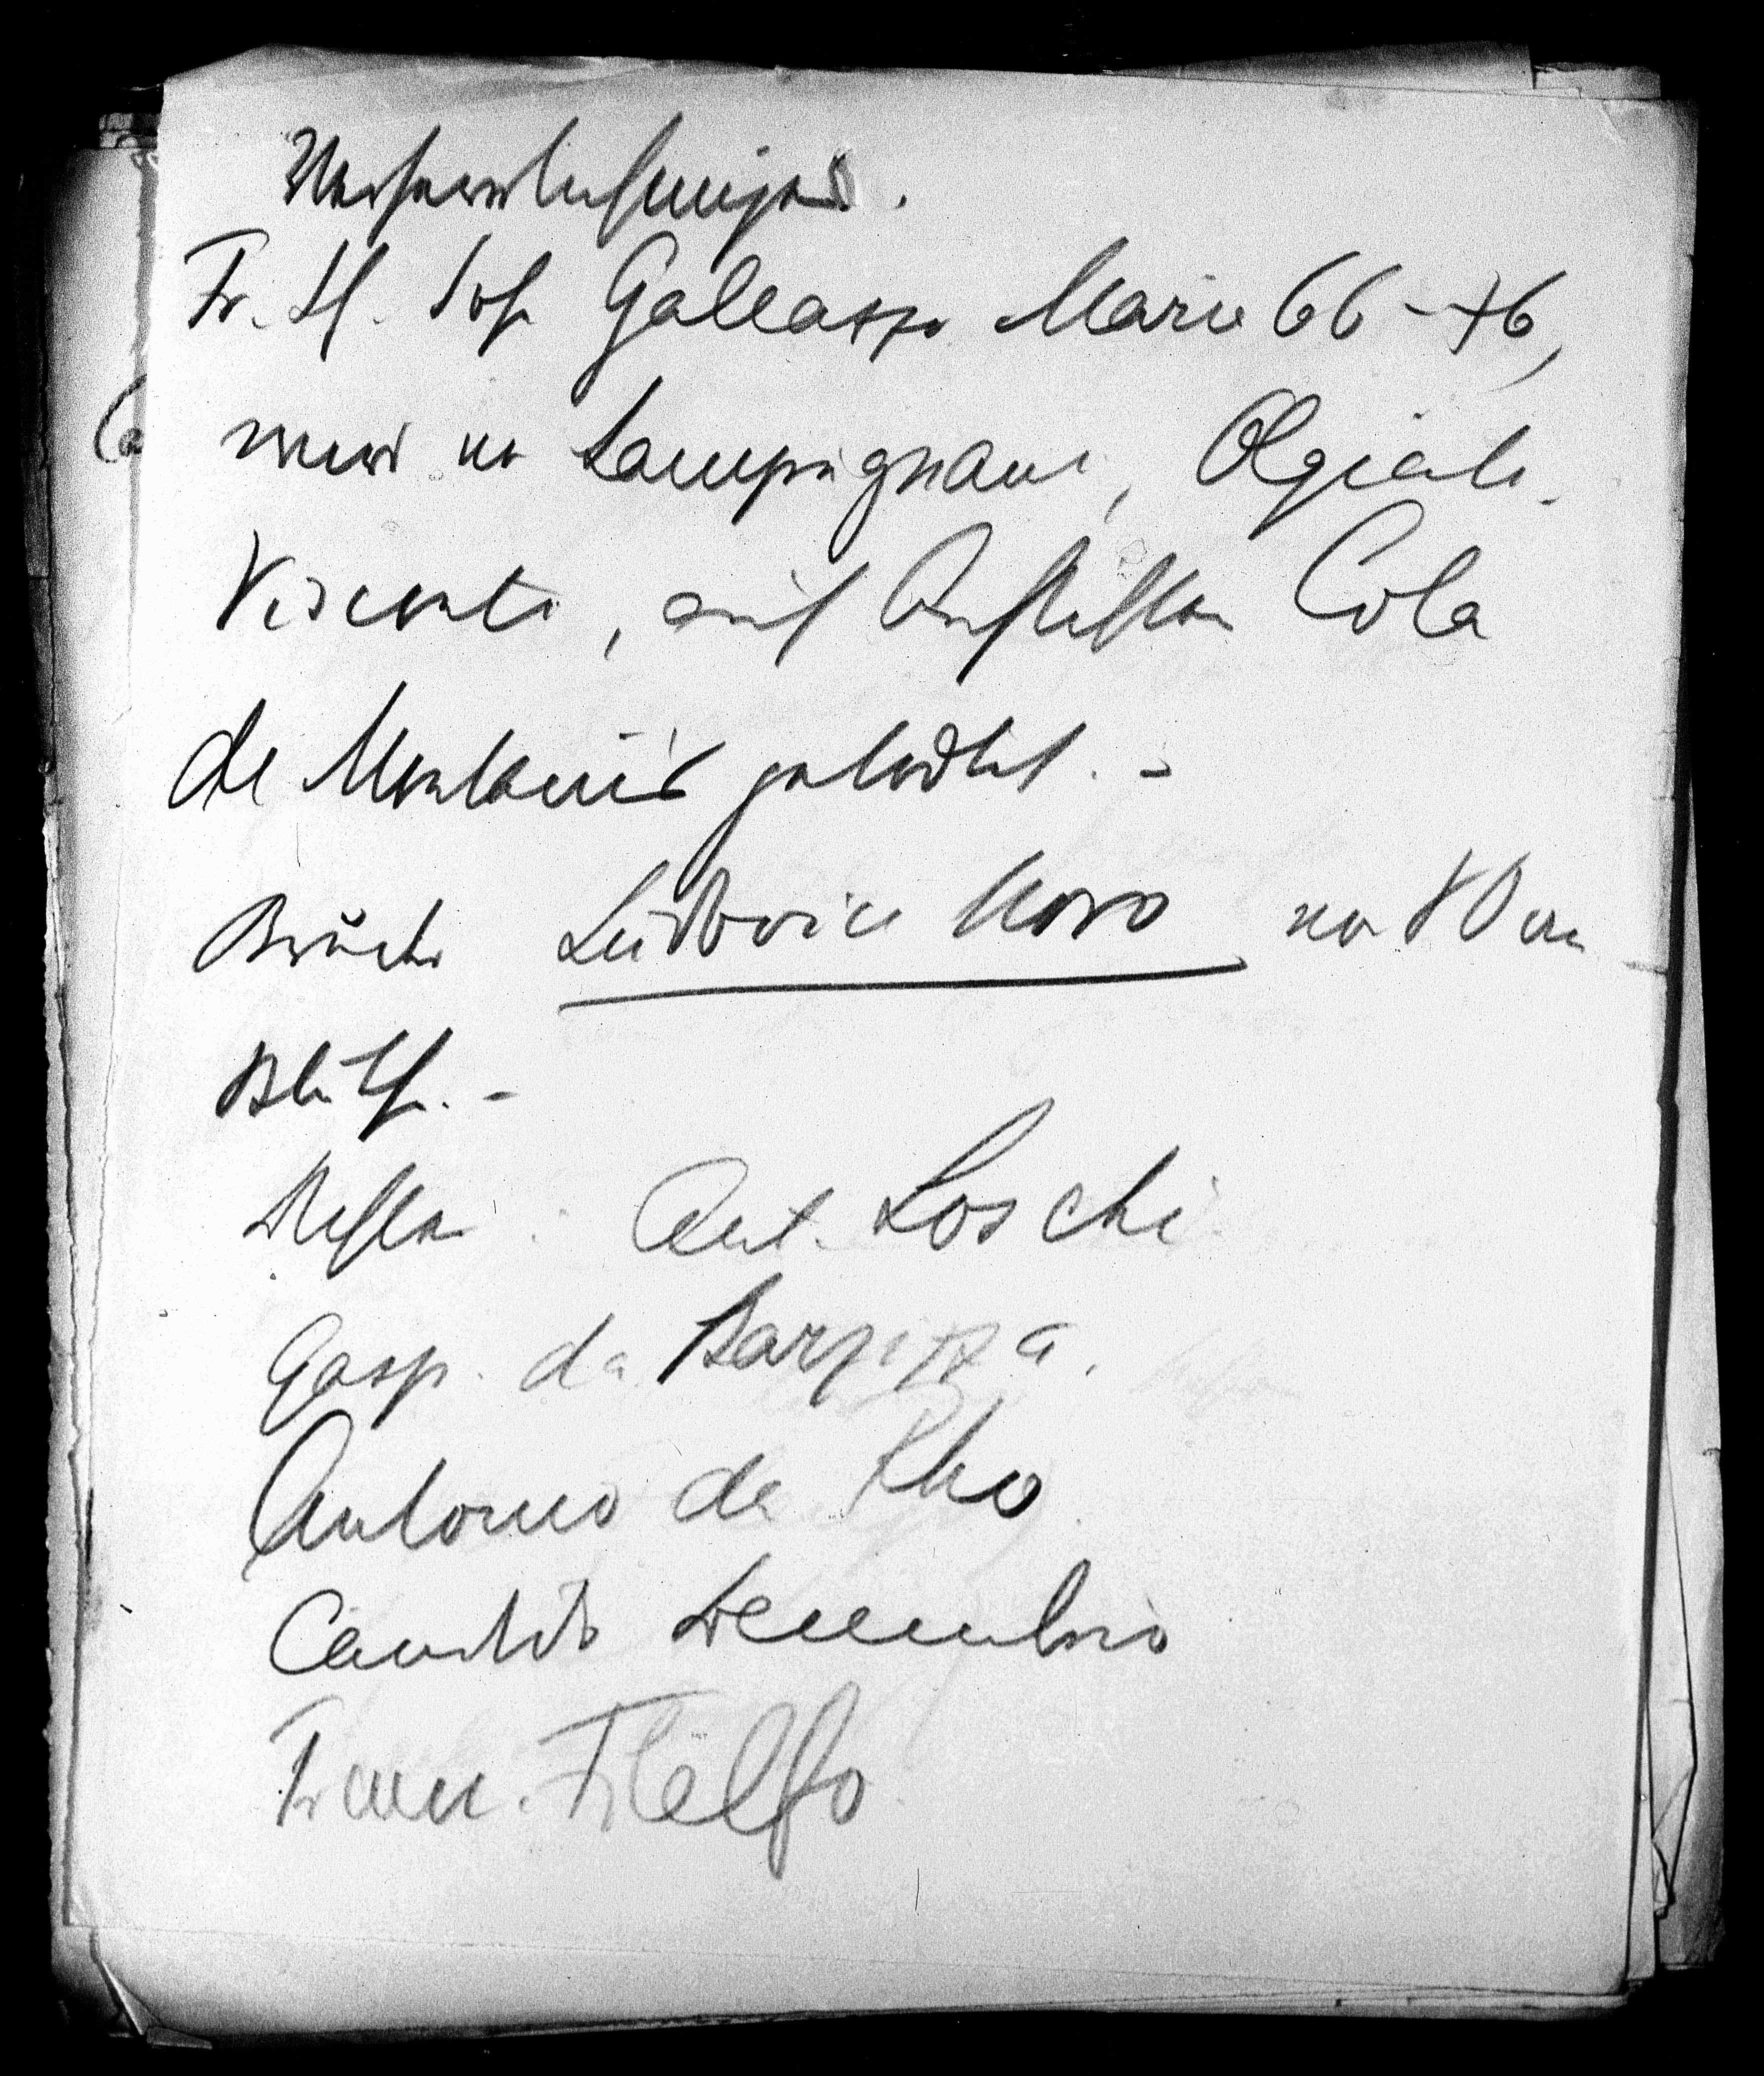 Fr. Sf. Sohn Galeazzo Maria 66–76,
wird von Lampugnani, Olgiati
Visconti, auf Anstiften Cola
de Montanis getödtet. –
Bruder Ludovico Moro von
Blüthe. –
Ant. Loschi
Gasp. da Barzizza.
Antonio da Rho
Candido Decembrio
Franc. Filelfo